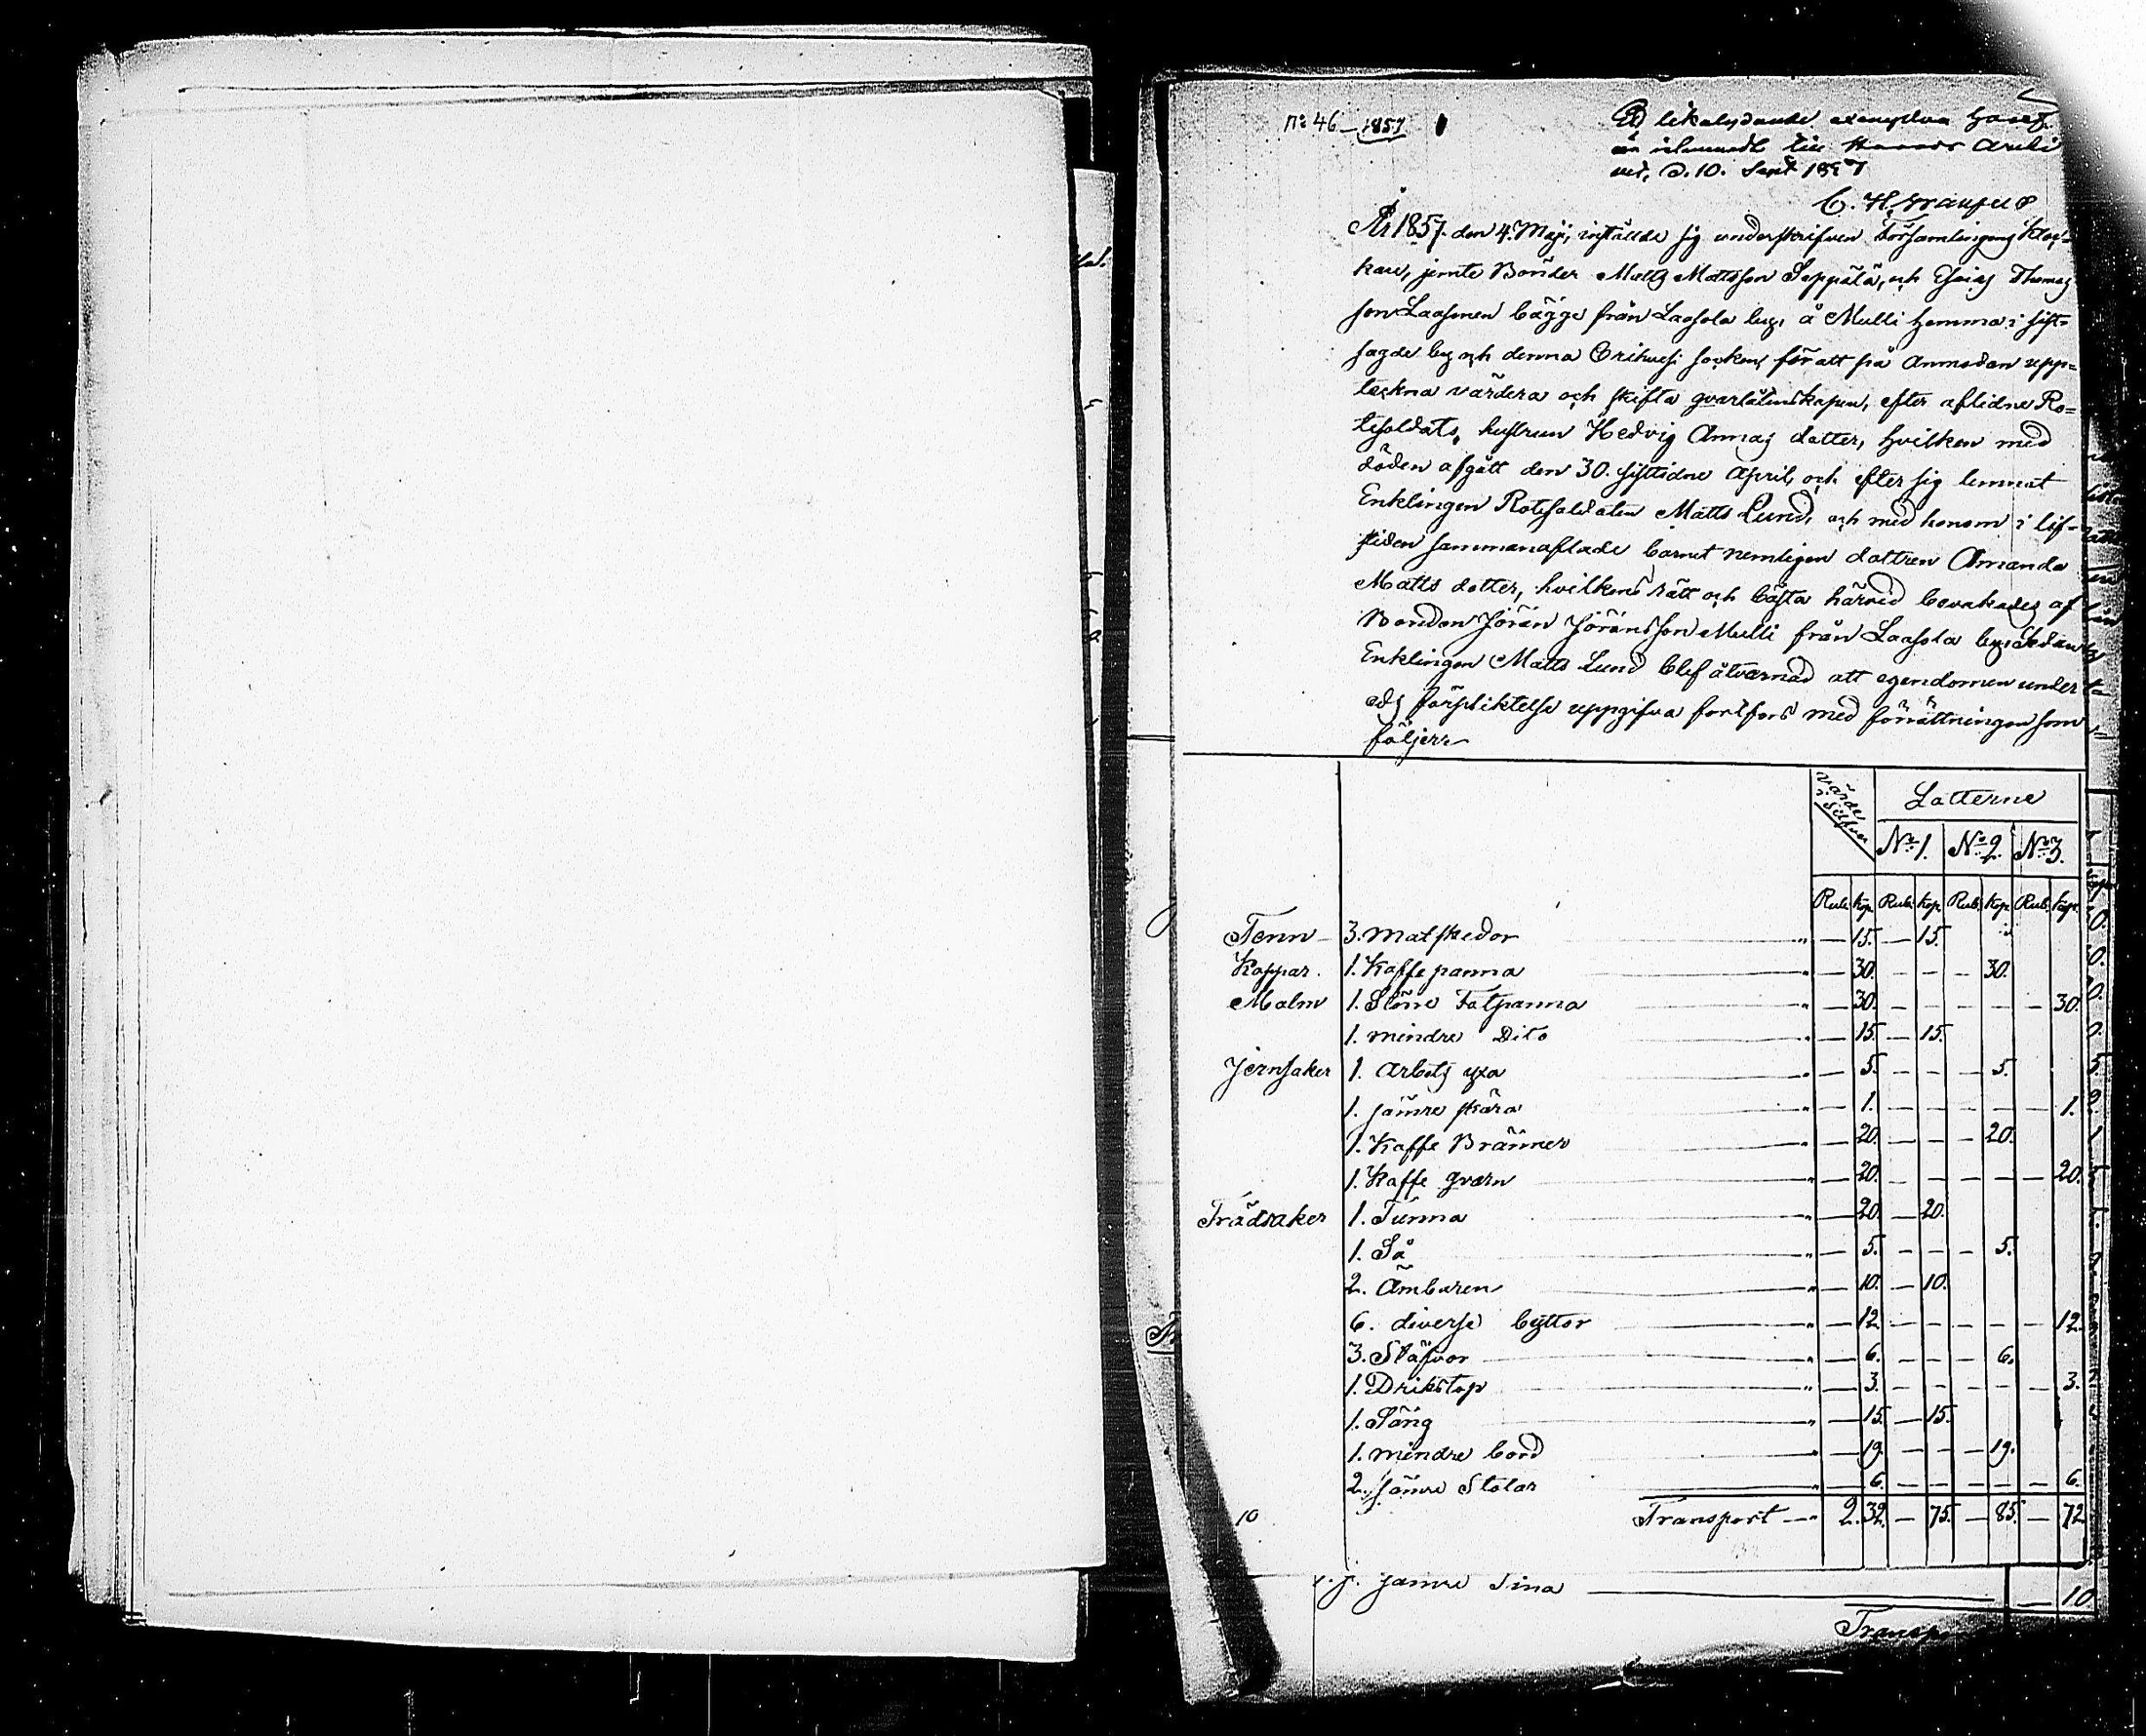 No 46 — 1857
Ett likalydande exemplar
till Härads Arki
vet, d. 10. Sept 1857
C. H.
År 1857. den 4. Maji, instälde sig underskrifven Församlingens Kloc-
kare, jemte Bönder Matts Mattsson Seppälä, och Esaias Thomas
son Laasonen bägge från Laasola by, å Mulli hemma i sist-
sagde by och denna Orihvesi socken, för att på anmodan upp=
teckna värdera och skifta qvarlåtenskapen, efter aflidne Ro=
tesoldats, hustrun Hedvig Annas dotter, hvilken med
döden afgått den 30. sistlidne April, och efter sig lemnat
Enklingen Rotesoldaten Matts Lund, och med honom i lifs-
tiden sammanaflade barnet nemligen dottren Amanda
Matts dotter, hvilkens rätt och bästa härvid bevakades af
Bonden Jöran Jöransson Mulli från Laasola by. Sedan
Enklingen Matts Lund blef åtvarnad att egendomen under
eds förpliktelse uppgifva fortfors med förrättningen som
följer
Värde i Silfver Lotterne
No 1. No 2. No 3.
Rub. Kop. Rub. Kop. Rub. Kop. Rub. Kop.
Tenn 3. Matskedor " — 15. — 15.
Koppar. 1. Kaffe panna " — 30. — — — 30.
Malm 1. Större Fatpanna " — 30. — — — — — 30.
1. mindre Dito " — 15. — 15.
Jernsaker 1. Arbets yxa " — 5. — — — 5.
1. sämre skära " — 1. — — — — — 1.
1. Kaffe Bränner " — 20. — — — 20.
1. Kaffe qvarn " — 20. — — — — — 20.
Trädsaker 1. Tunna " — 20. — 20.
1. Så " — 5. — — — 5.
2. Ämbaren " — 10. — 10.
6. diverse byttor " — 12. — — — — — 12.
3. Stäfvor " — 6. — — — 6.
1. Drikstop " — 3. — — — — — 3.
1. Säng " — 15. — 15.
1. mindre bord " — 19. — — — 19.
2. sämre Stolar " — 6. — — — — — 6.
10 Transport — " 2. 32. — 75. — 85. — 72
sämre Tina — 10
Transpor